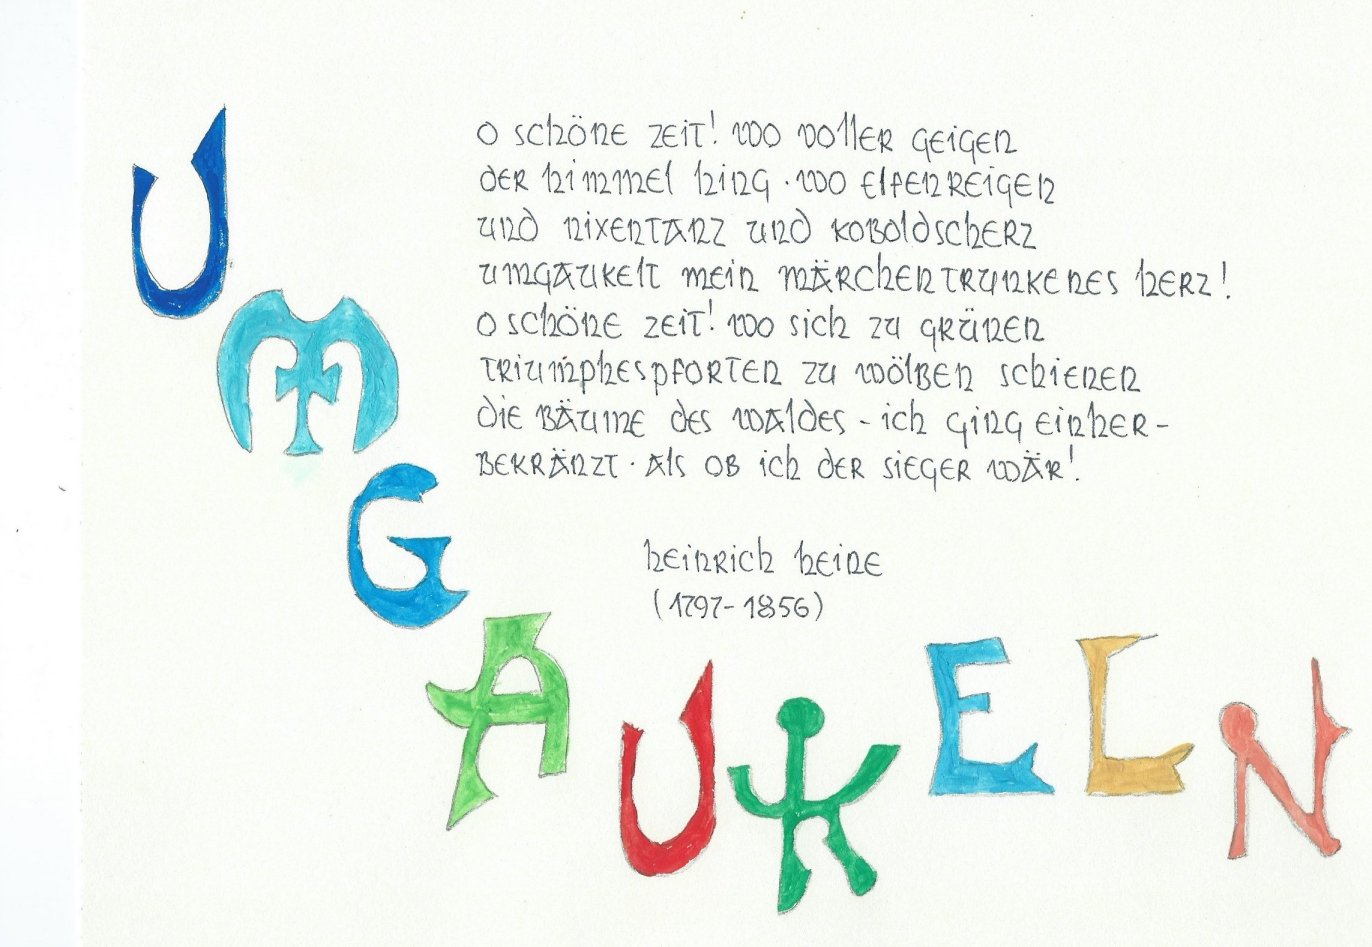 O schöne Zeit! wo voller Geigen
der Himmel hing · wo Elfenreigen
und Nixentanz und Koboldscherz
umgaukelt mein märchentrunkenes Herz!
O schöne Zeit! wo sich zu grünen
Triumphespforten zu wölben schienen
die Bäume des Waldes - ich ging einher -
bekränzt · als ob ich der Sieger wär!
Heinrich Heine
(1797-1856)
UMGAUKELN